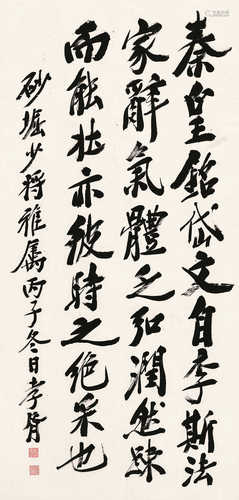 秦皇銘岱文自李斯法
家辭氣體之弘潤然疎
而能壯亦彼時之绝采也
砂堀少将雅屬丙子冬日孝胥